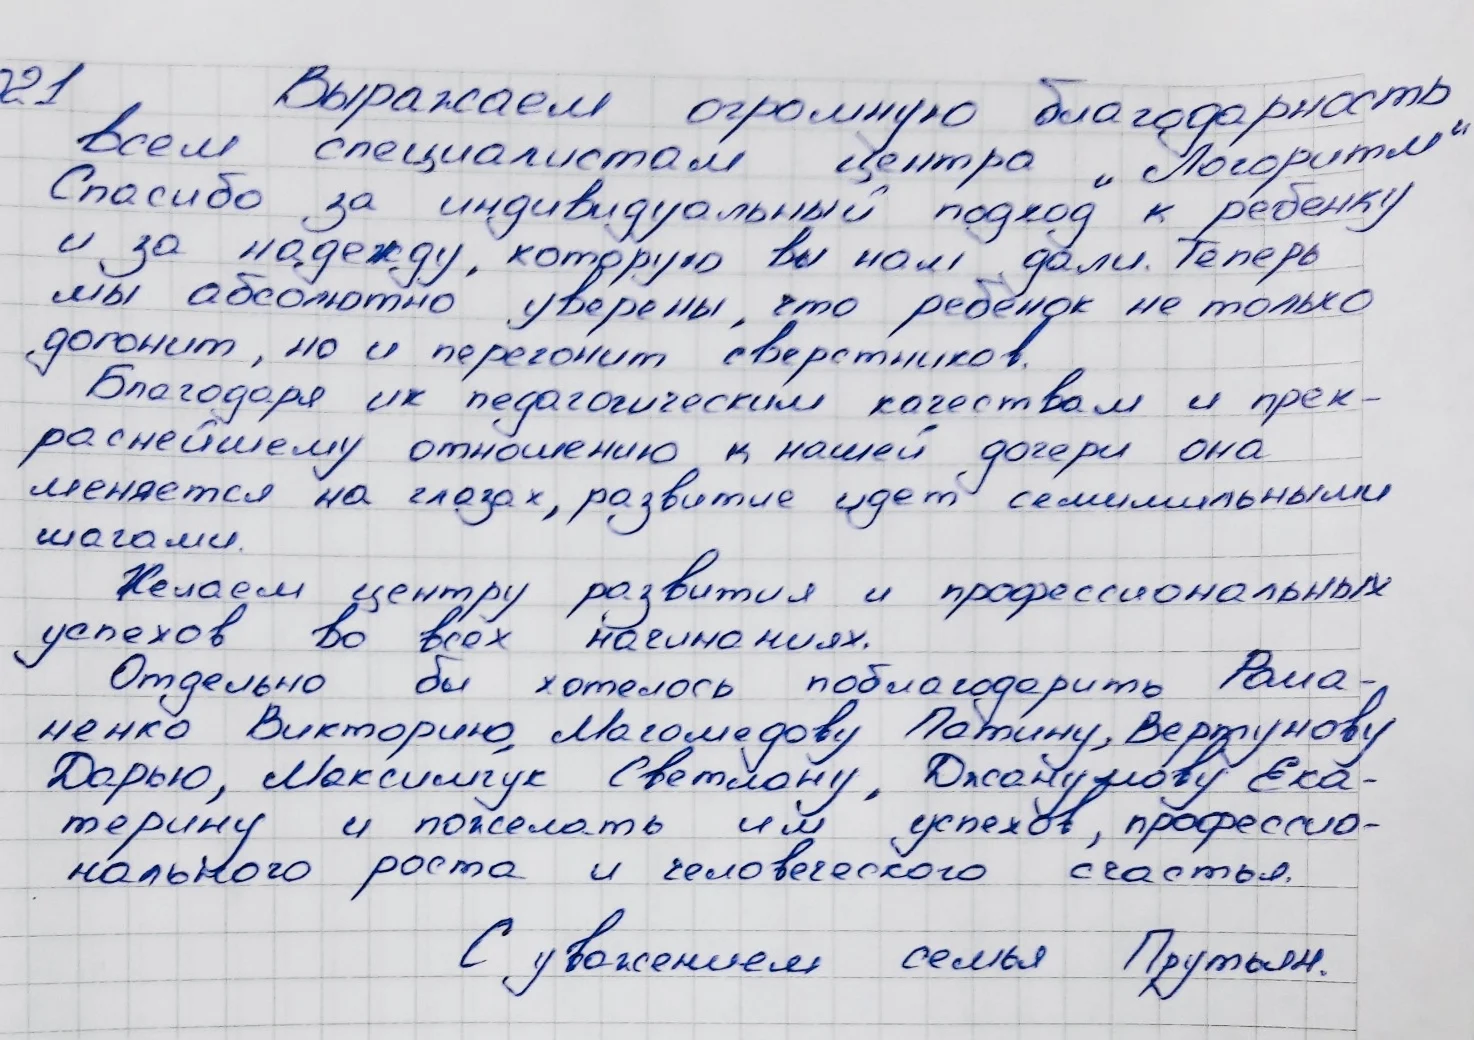 021 Выражаем огромную благодарность
всем специалистам центра „Логоритм“
Спасибо за индивидуальный подход к ребенку
и за надежду, которую вы нам дали. Теперь
мы абсолютно уверены, что ребёнок не только
догонит, но и перегонит сверстников.
Благодаря их педагогическим качествам и прек-
раснейшему отношению к нашей дочери она
меняется на глазах, развитие идет семимильными
шагами.
Желаем центру развития и профессиональных
успехов во всех начинаниях.
Отдельно бы хотелось поблагодарить Рома-
ненко Викторию, Магомедову Патину, Вертунову
Дарью, Максимчук Светлану, Джанумову Ека-
терину и пожелать им успехов, профессио-
нального роста и человеческого счастья.
С уважением семья Прутьян.